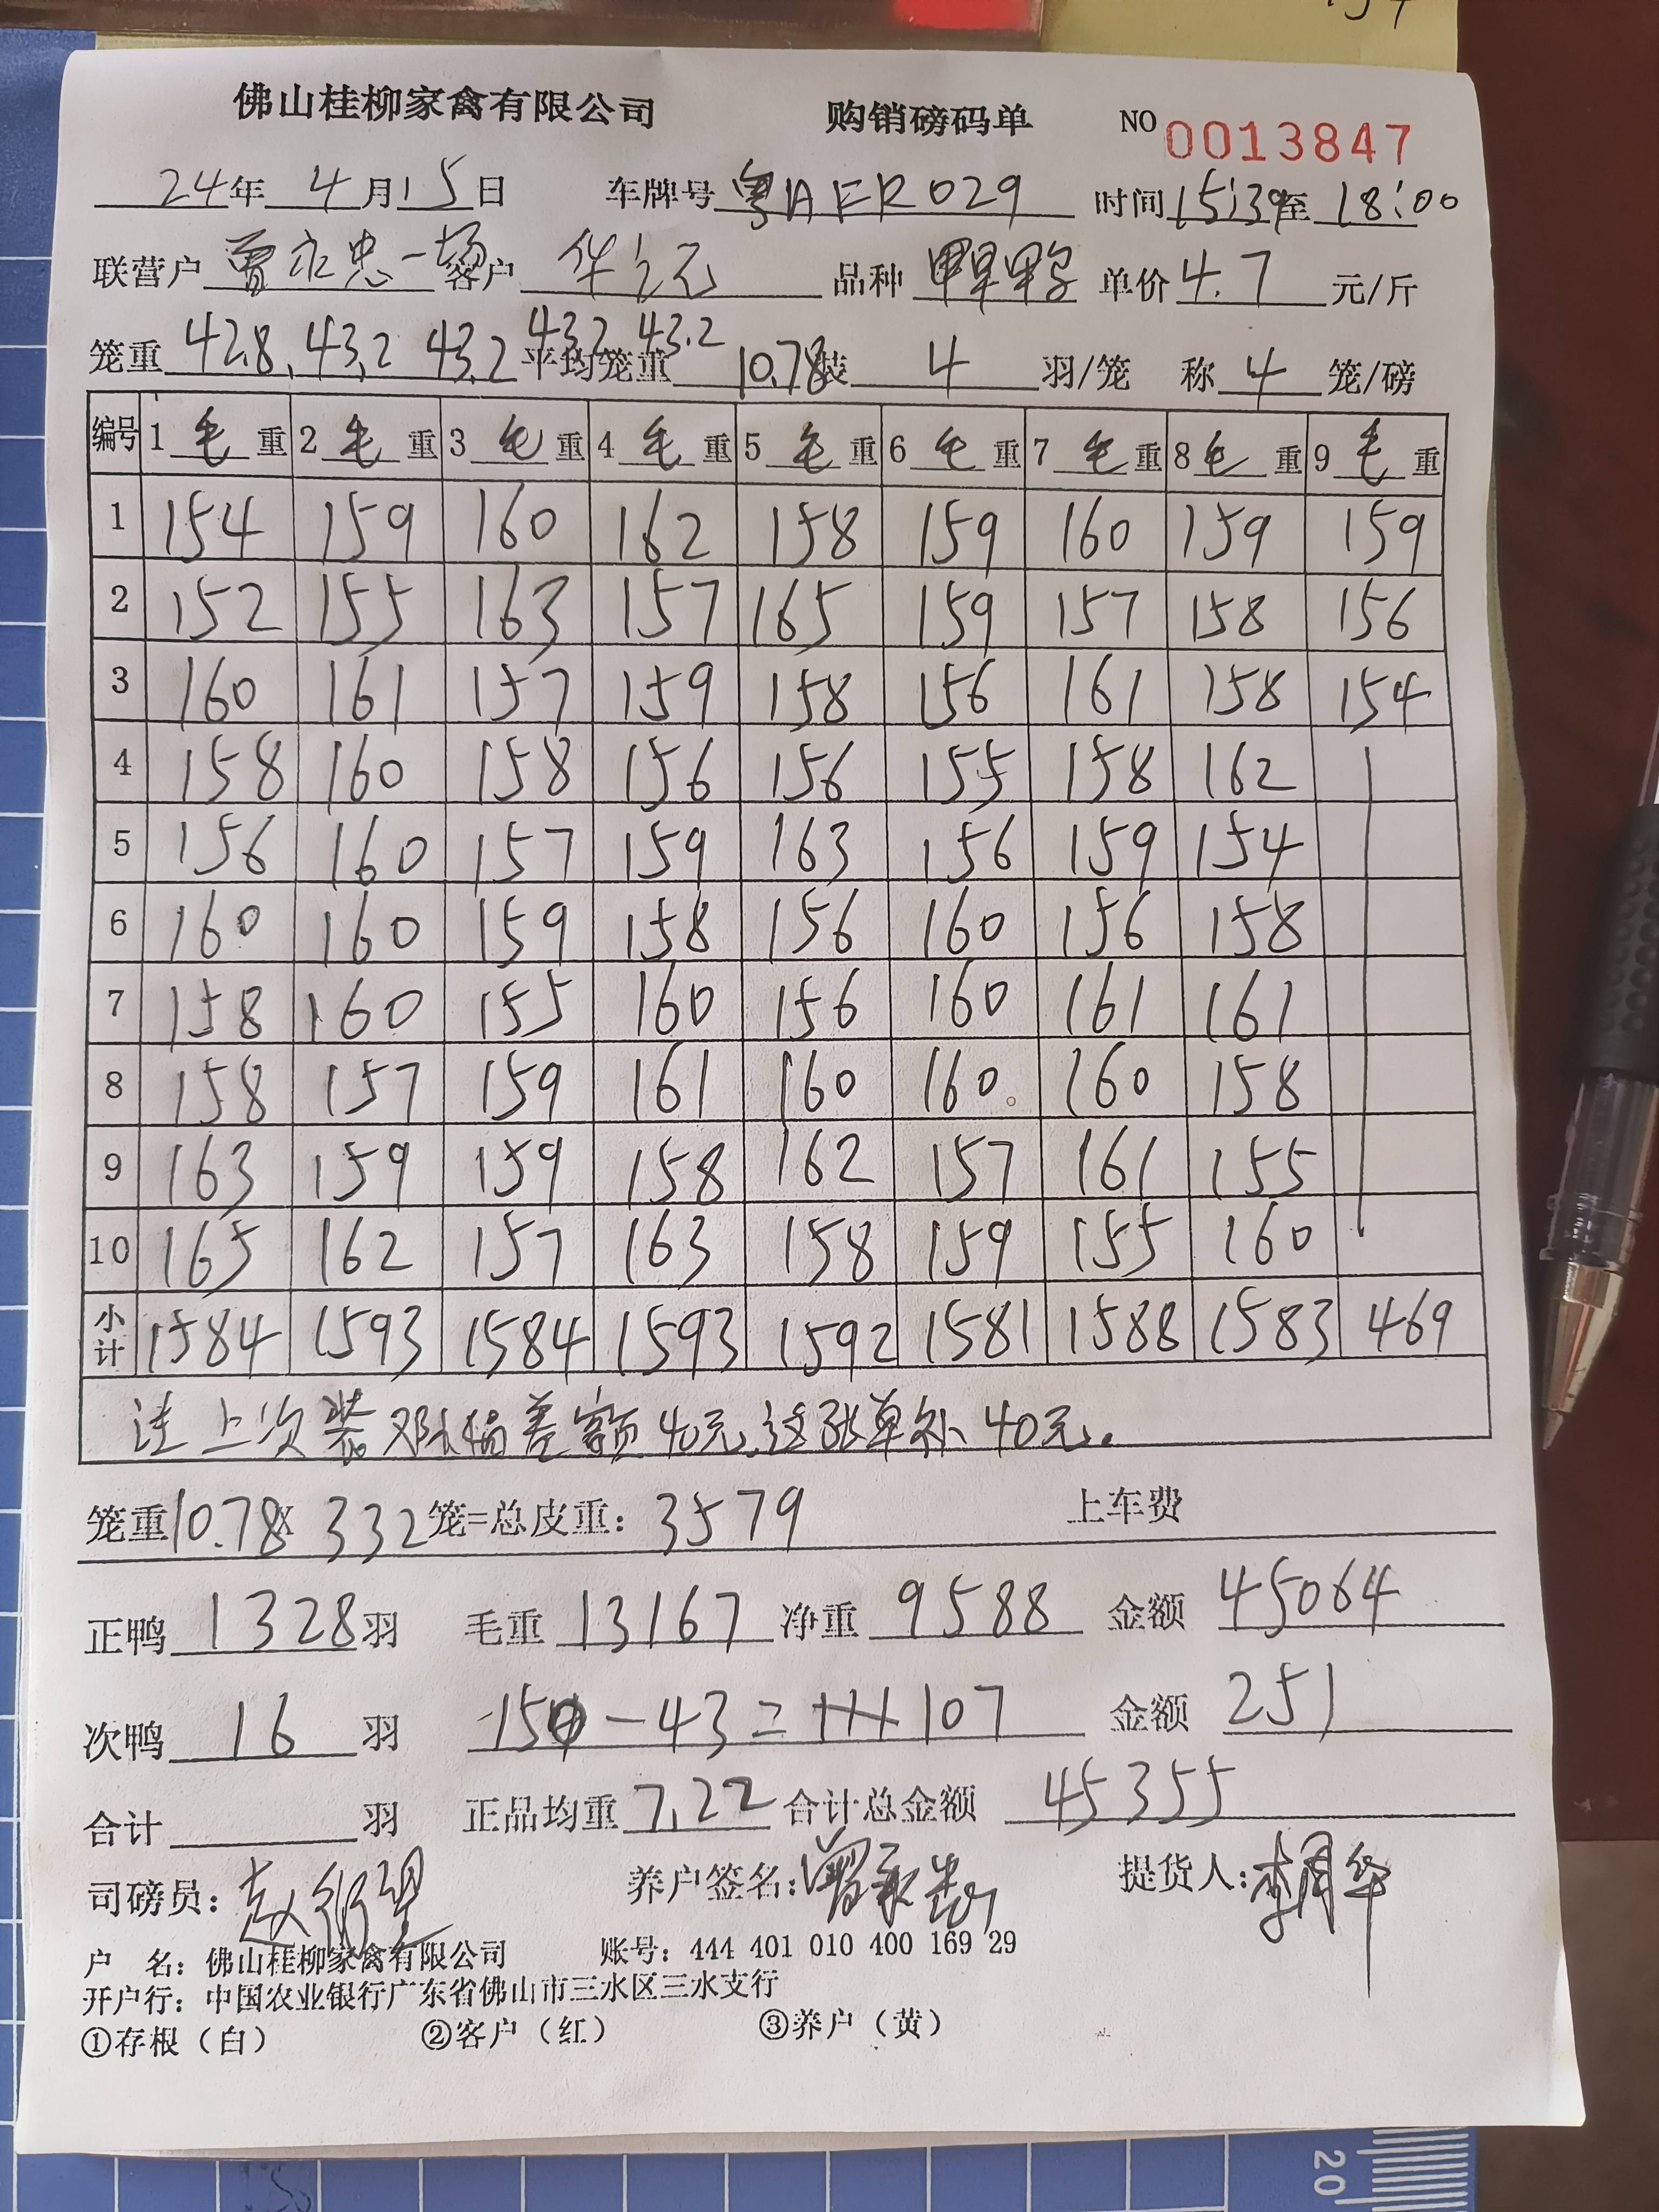 佛山桂柳家禽有限公司 购销磅码单 NO 0013847
24年 4月15日 车牌号 粤AFR029 时间 15:39至 18:00
联营户 曾永忠一场 客户 华记 品种 单价 4.7 元/斤
笼重 42.8, 43.2 43.2 43.2 43.2 平均笼重 10.78 装 4 羽/笼 称 4 笼/磅
编号 1 毛 重 2 毛 重 3 毛 重 4 毛 重 5 毛 重 6 毛 重 7 毛 重 8 毛 重 9 毛 重
1 154 159 160 162 158 159 160 159 159
2 152 155 163 157 165 159 157 158 156
3 160 161 157 159 158 156 161 158 154
4 158 160 158 156 156 155 158 162
5 156 160 157 159 163 156 159 154
6 160 160 159 158 156 160 156 158
7 158 160 155 160 156 160 161 161
8 158 157 159 161 160 160 160 158
9 163 159 159 158 162 157 161 155
10 165 162 157 163 158 159 155 160
小计 1584 1593 1584 1593 1592 1581 1588 1583 469
注 上次装 差额40元,这张单补40元。
笼重10.78X 332笼=总皮重: 3579 上车费
正鸭 1328羽 毛重 13167 净重 9588 金额 45064
次鸭 16 羽 150-43= 107 金额 251
合计 羽 正品均重 7.22 合计总金额 45355
司磅员: 养户签名: 提货人:
户 名: 佛山桂柳家禽有限公司 账号: 444 401 010 400 169 29
开户行: 中国农业银行广东省佛山市三水区三水支行
①存根(白) ②客户(红) ③养户(黄)
20